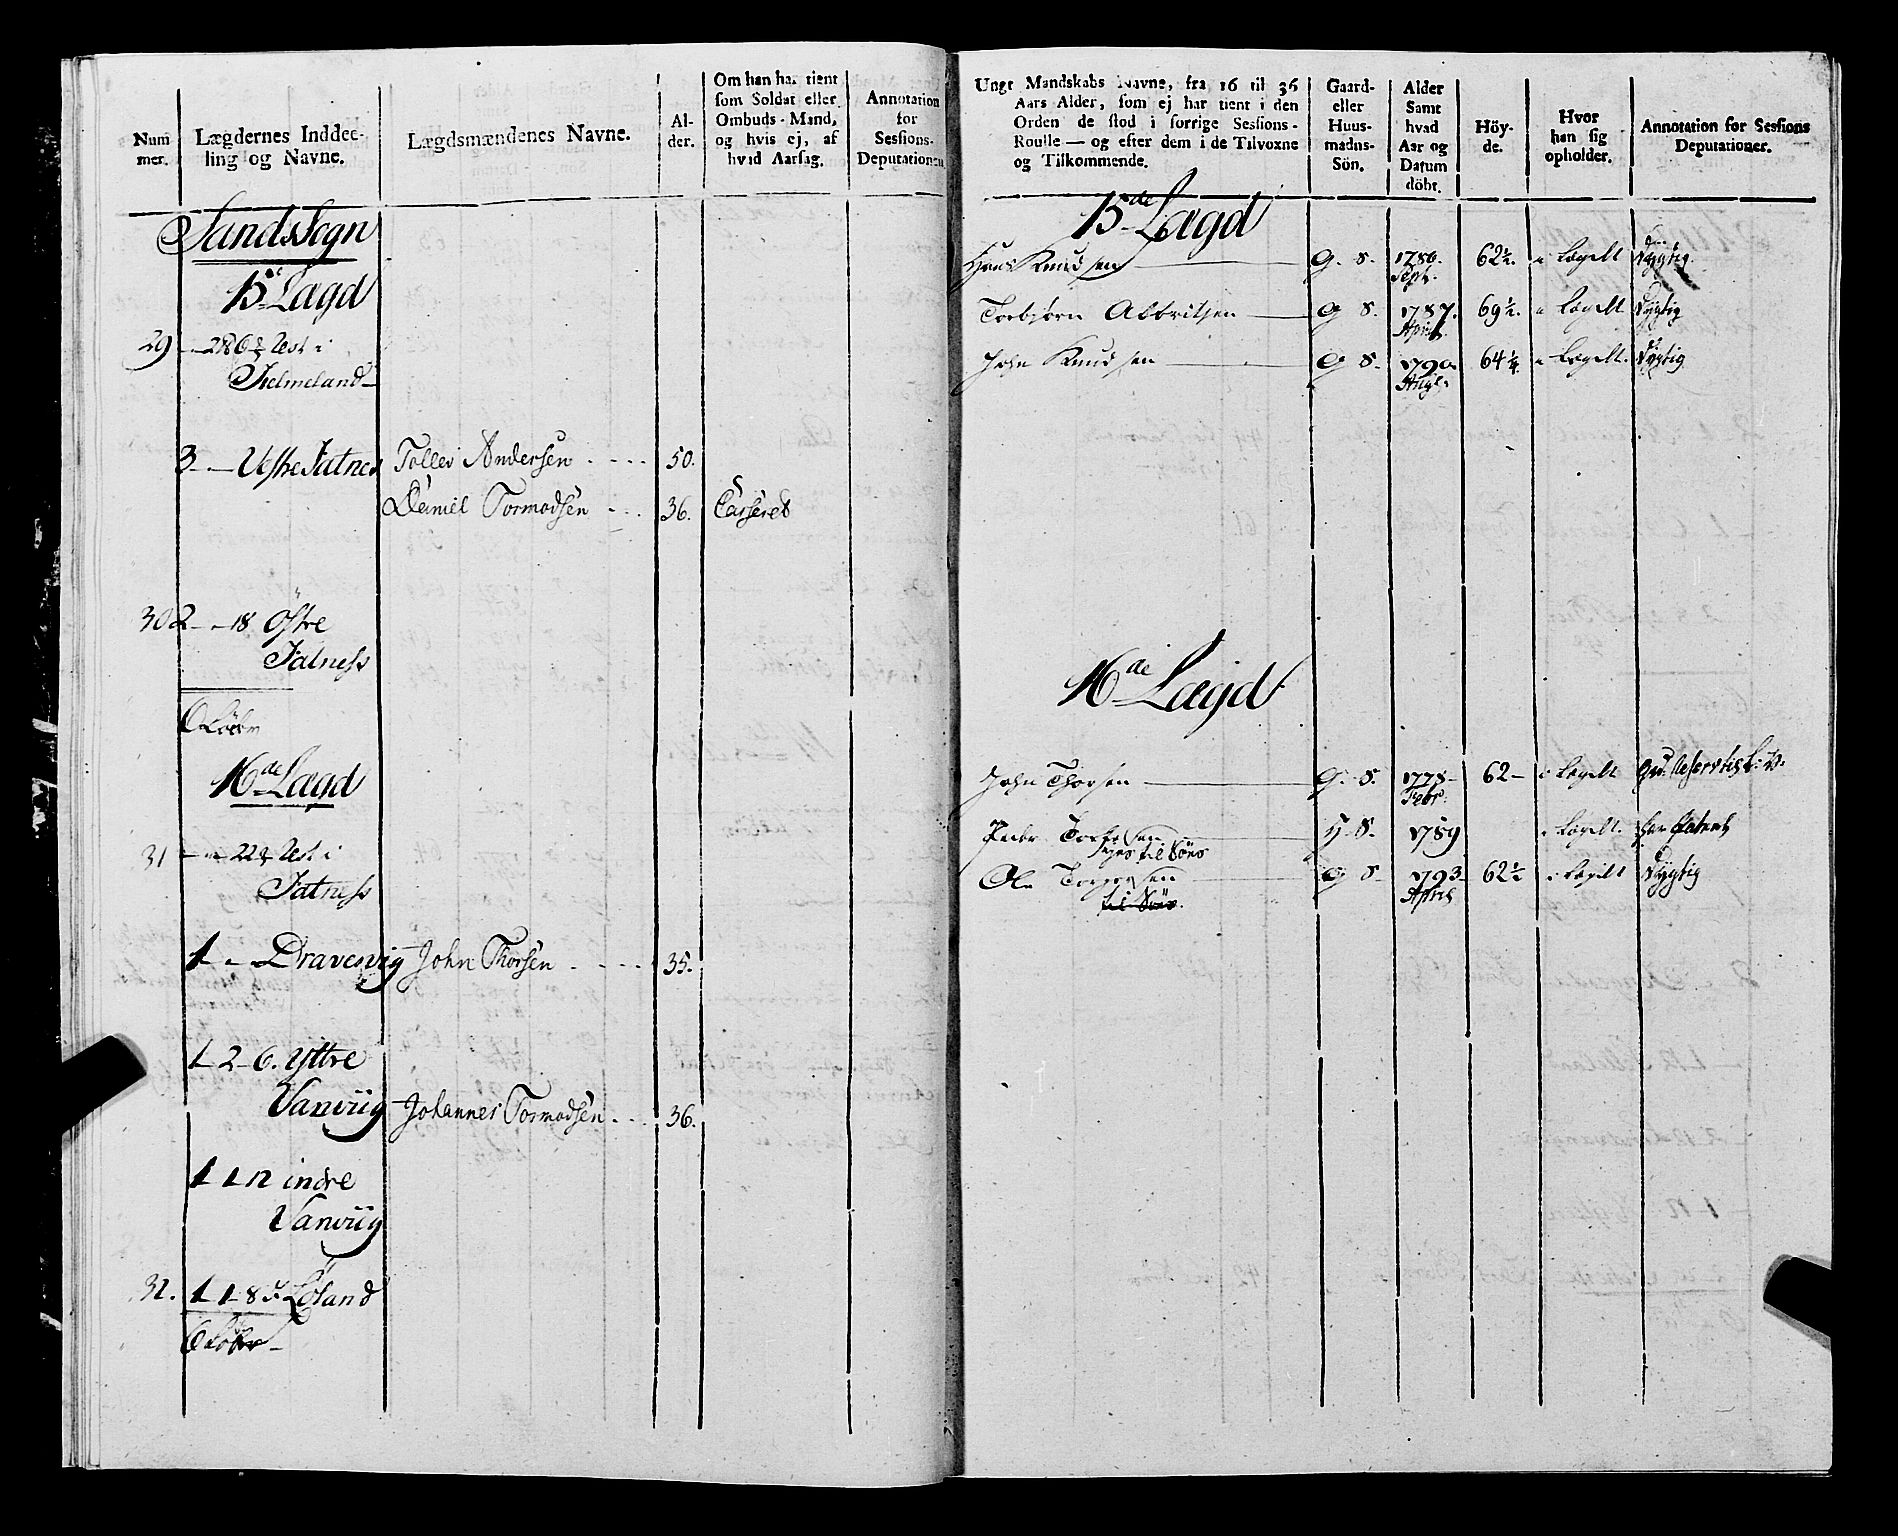 Num
mer.
Lægdernes Inddee-
ling og Navne.
Lægdsmændenes Navne.
Al-
der.
Om han har tient
som Soldat eller
Ombuds-Mand,
og hvis ej, af
hvad Aarsag.
Annotation
for
Sessions-
Deputationen
Sands Sogn
15de Lægd
29 2 6 Ust i
Helmeland
3 - Vestre Jatnes Tollev Andersen 50.
Daniel Tormodsen 36. Casseret
30 2 - - 18 Østre
Jatness
6 Løber
16de Lægd
31 - - 22 Ust i
Jatness
1 - - Dravesvig John Thorsen 35.
1 - 2 - 6. Yttre
Vanviig Johannes Tormodsen 36.
1 1 12 indre
Vanviig
32. 1 1 8 Løland
6 Løber
Unge Mandskabs Navne, fra 16 til 36
Aars Alder, som ej har tient i den
Orden de stod i forrige Sessions-
Roulle — og efter dem i de Tilvoxne
og Tilkommende.
Gaard-
eller
Huus-
mands-
Sön.
Alder
Samt
hvad
Aar og
Datum
döbt.
Höy-
de.
Hvor
han sig
opholder.
Annotation for Sessions
Deputationer.
15de Lægd
Hans Knudsen G. S. 1780. 62½. i Lægdt Dygtig
Sept.
Torbjørn Albritsen G S. 1787. 69½. i Lægdt Dygtig
April.
John Knudsen G S. 1790. 64¼. i Lægdt. Dygtig
Aug.
16de Lægd
John Thorsen G. S. 1778 62 - i Lægdt
Febr.
Peder H S. 1789 i Lægdt. har Patent
til Søes
Ole G S 1793 62½ i Lægdt Dygtig
April
til Søes.